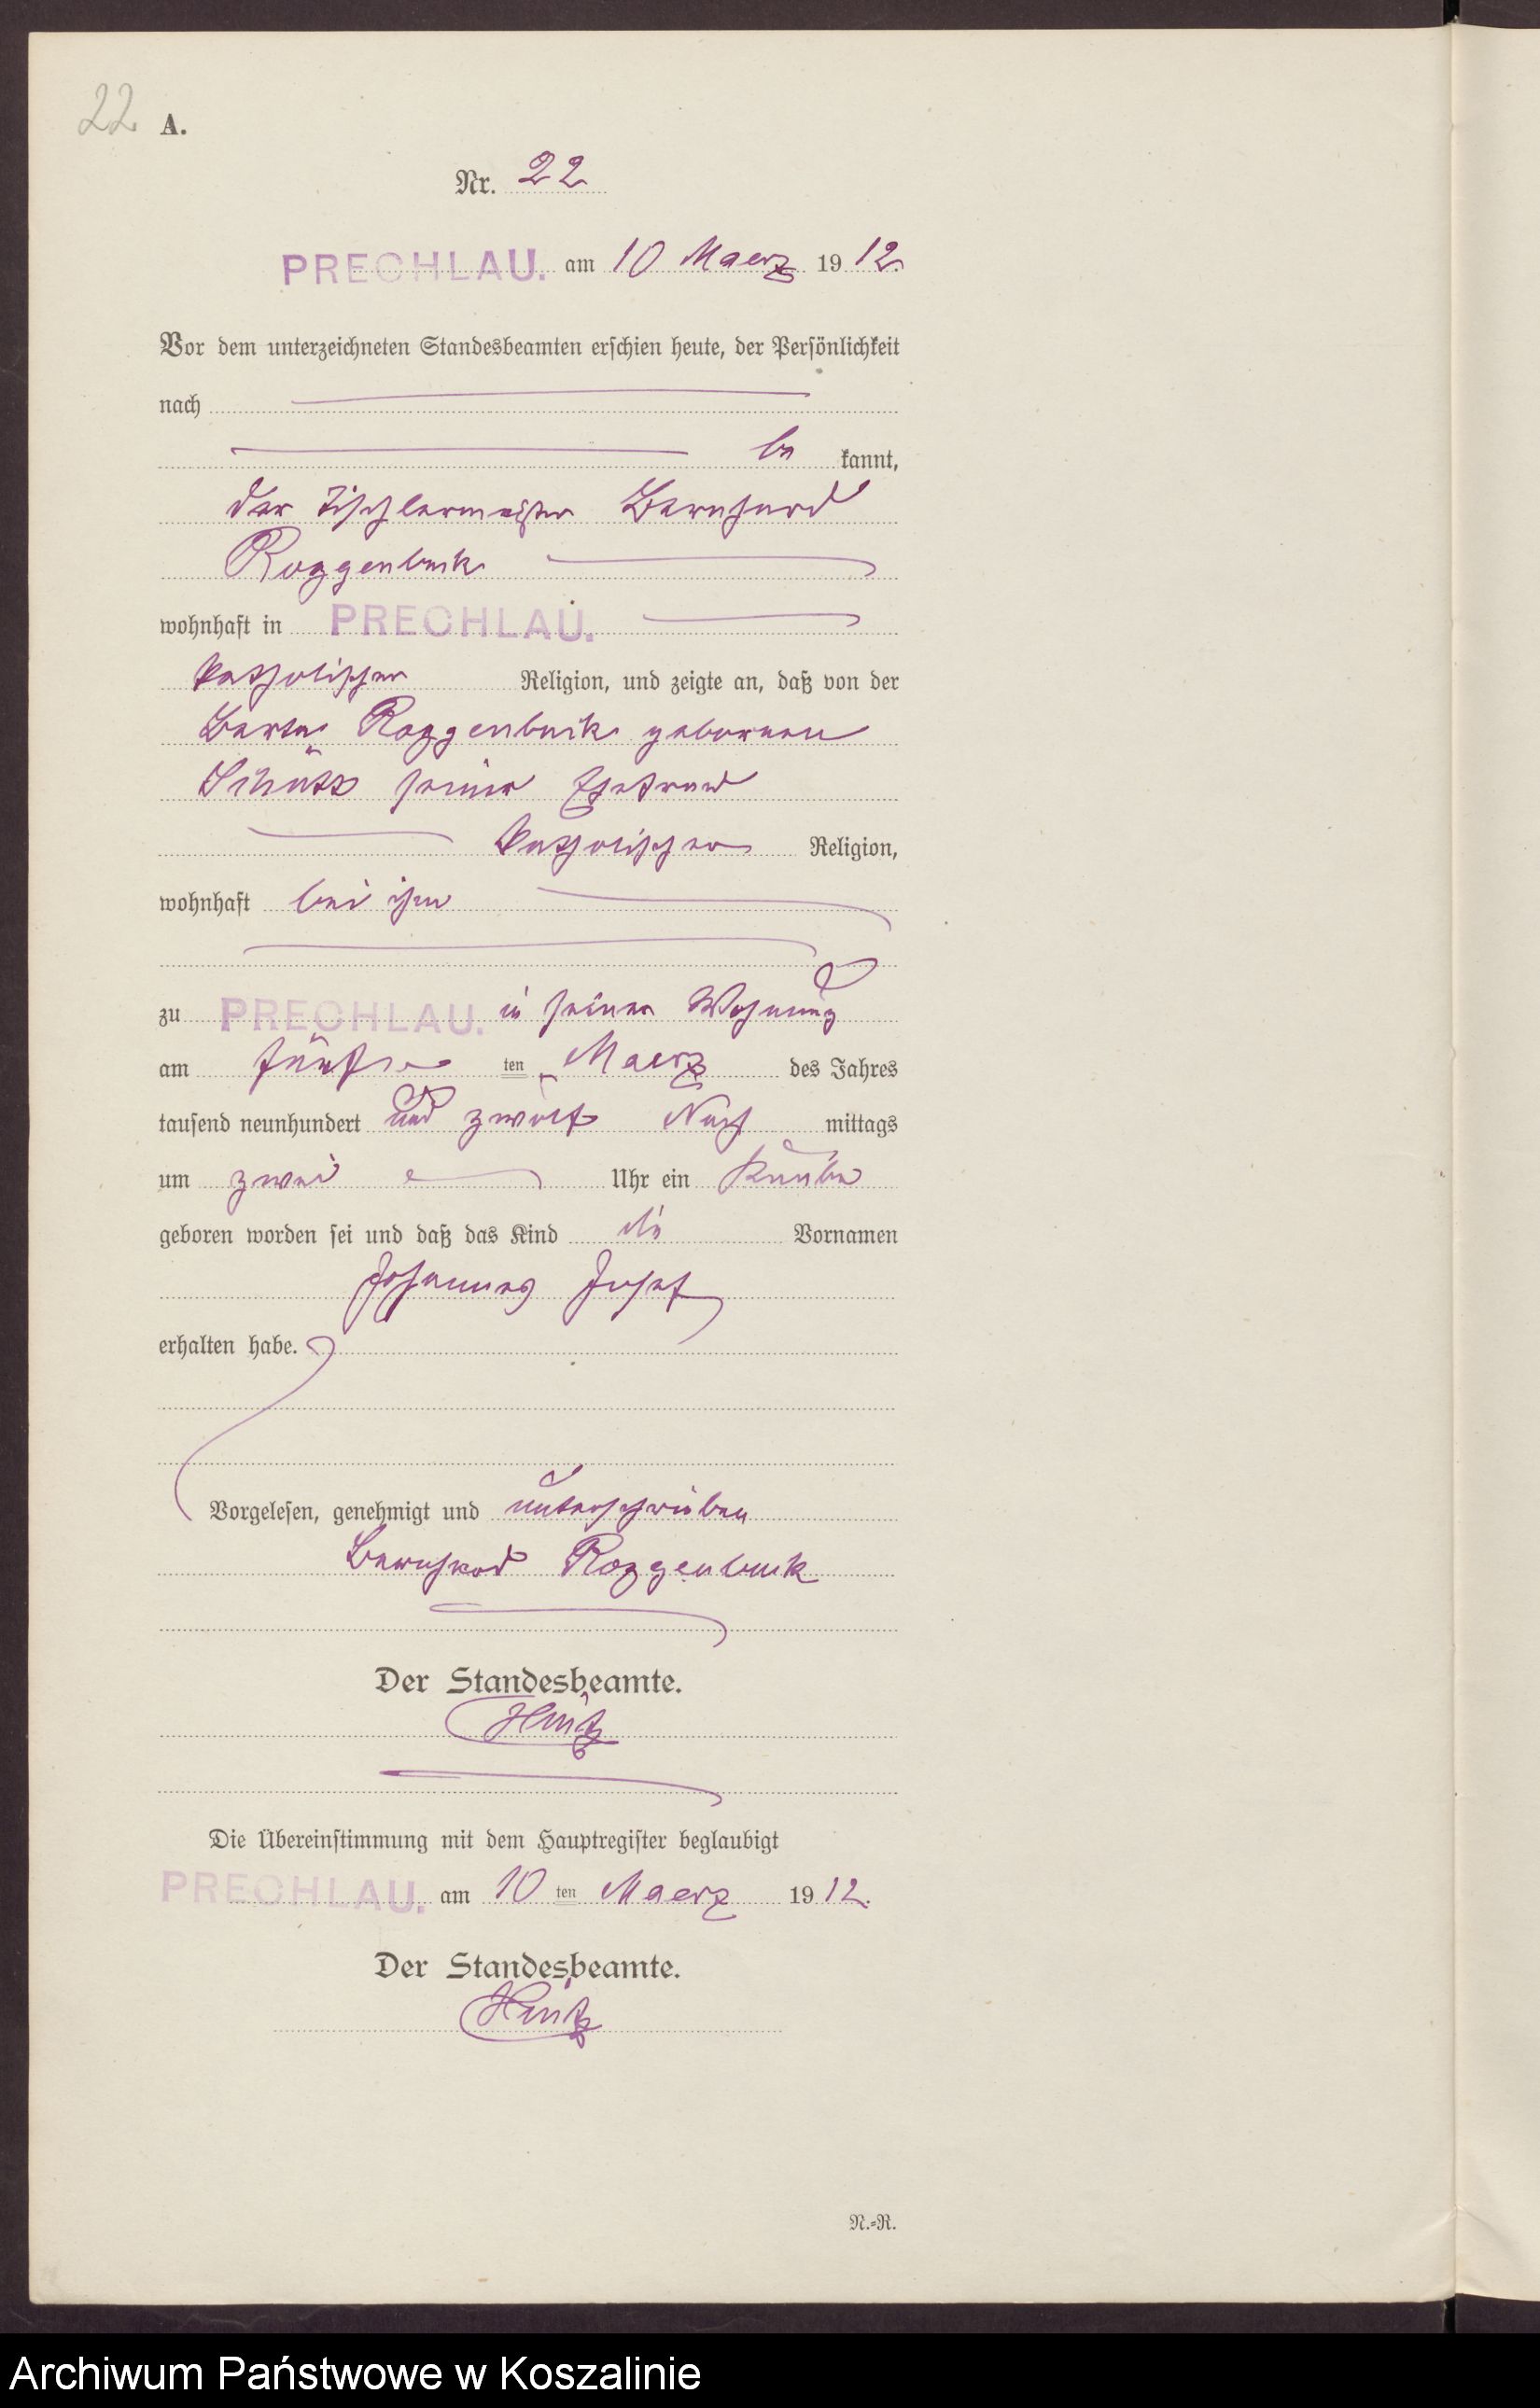 22 A.
Nr. 22
PRECHLAU. am 10 Maerz 1912.
Vor dem unterzeichneten Standesbeamten erschien heute, der Persönlichkeit
nach
be kannt,
der Tischlermeister Bernhard
Roggenbuck
wohnhaft in PRECHLAU.
katholischer Religion, und zeigte an, daß von der
Roggenbuck geborenen
Schütz seiner Ehefrau
katholischer Religion,
wohnhaft bei ihm
zu PRECHLAU. in seiner Wohnung
am fünf ten Maerz des Jahres
tausend neunhundert und zwölf Nach mittags
um zwei Uhr ein Knabe
geboren worden sei und daß das Kind die Vornamen
Johannes Josef
erhalten habe.
Vorgelesen, genehmigt und unterschrieben
Bernhard Roggenbuck
Der Standesbeamte.
Hintz
Die Übereinstimmung mit dem Hauptregister beglaubigt
PRECHLAU. am 10 ten Maerz 1912.
Der Standesbeamte.
Hintz
N.=R.
Archiwum Państwowe w Koszalinie